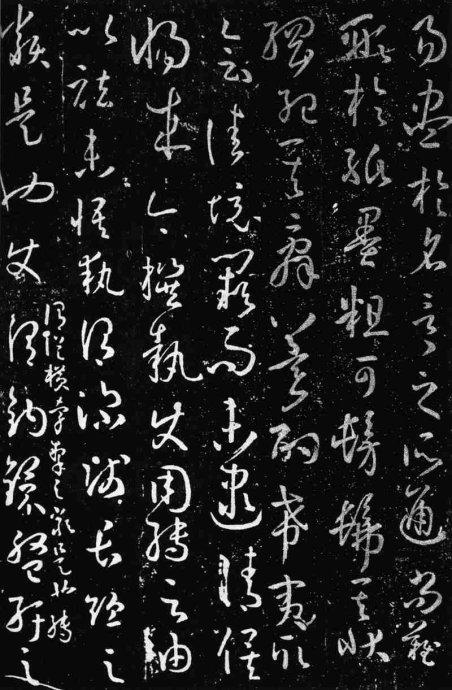 易盡於名言言之所通尚難
形於紙墨粗可髣髴其狀
綱紀其辭冀酌希夷取
會佳境闕而未逮請俟
將來今撰執使用轉之由
以祛未悟執謂深淺長短之
類是也使謂鉤鐶盤紆之
謂縱橫牽掣之類是也轉